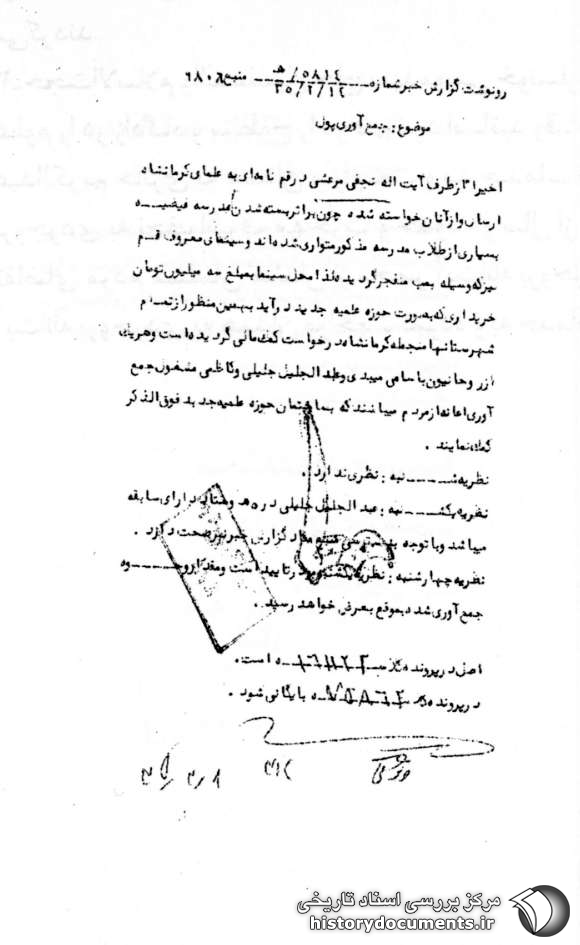 رونوشت گزارش خبر شماره ۵۸۱۴/هـ منبع ۹۸۰۸
۳۵/۲/۱۲
موضوع : جمع آوری پول
اخیراً از طرف آیت اله نجفی مرعشی در قم نامه‌ای به علمای کرمانشاه
ارسال و از آنان خواسته شده چون بر اثر بسته شدن مدرسه فیضیه
بسیاری از طلاب مدرسه مذکور متواری شده‌اند و سینمای معروف قم
نیز که وسیله بمب منفجر گردیده لذا محل سینما بمبلغ سه میلیون تومان
خریداری که بصورت حوزه علمیه جدید درآید بهمین منظور از تمام
شهرستانها منجمله کرمانشاه درخواست کمک مالی گردیده است و هریک
از روحانیون باسامی میبدی و عبدالجلیل جلیلی و کاظمی مشغول جمع
آوری اعانه از مردم میباشند که بساختمان حوزه علمیه جدید فوق الذکر
کمک نمایند .
نظریه شنبه : نظری ندارد .
نظریه یکشنبه : عبدالجلیل جلیلی در دارای سابقه
میباشد و با توجه مفاد گزارش خبر نیز صحت دارد .
نظریه چهارشنبه : نظریه یکشنبه مورد تایید است و مقدار وجوه
جمع آوری شده بموقع بعرض خواهد رسید .
اصل در پرونده کلاسه است .
در پرونده بایگانی شود .
مرکز بررسی اسناد تاریخی
historydocuments.ir